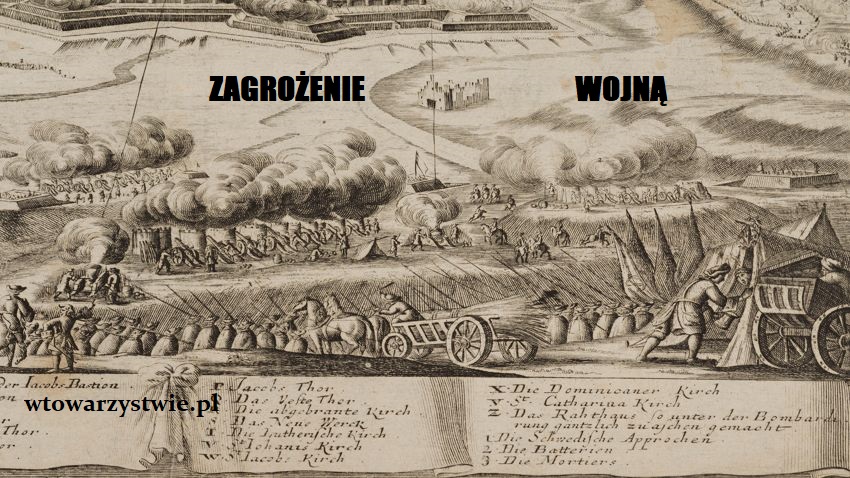 ZAGROŻENIE WOJNĄ
der Iacobs Bastion.
wtowarzystwie.pl
Thor.
Jacobs Thor
Das Veste Thor.
Die abgebrante Kirch
S Das Neue Werck
T Die Lutherische Kirch
V St Iohanis Kirch
W. St Iacobs Kirch
X. Die Dominicaner Kirch
Y. St. Catharina Kirch
Z Das Rahthaus so unter der Bombardi
rung gäntzlich zu aschen gemacht.
1 Die Schwedische Approchen
2 Die Batterien
3 Die Mortiers.